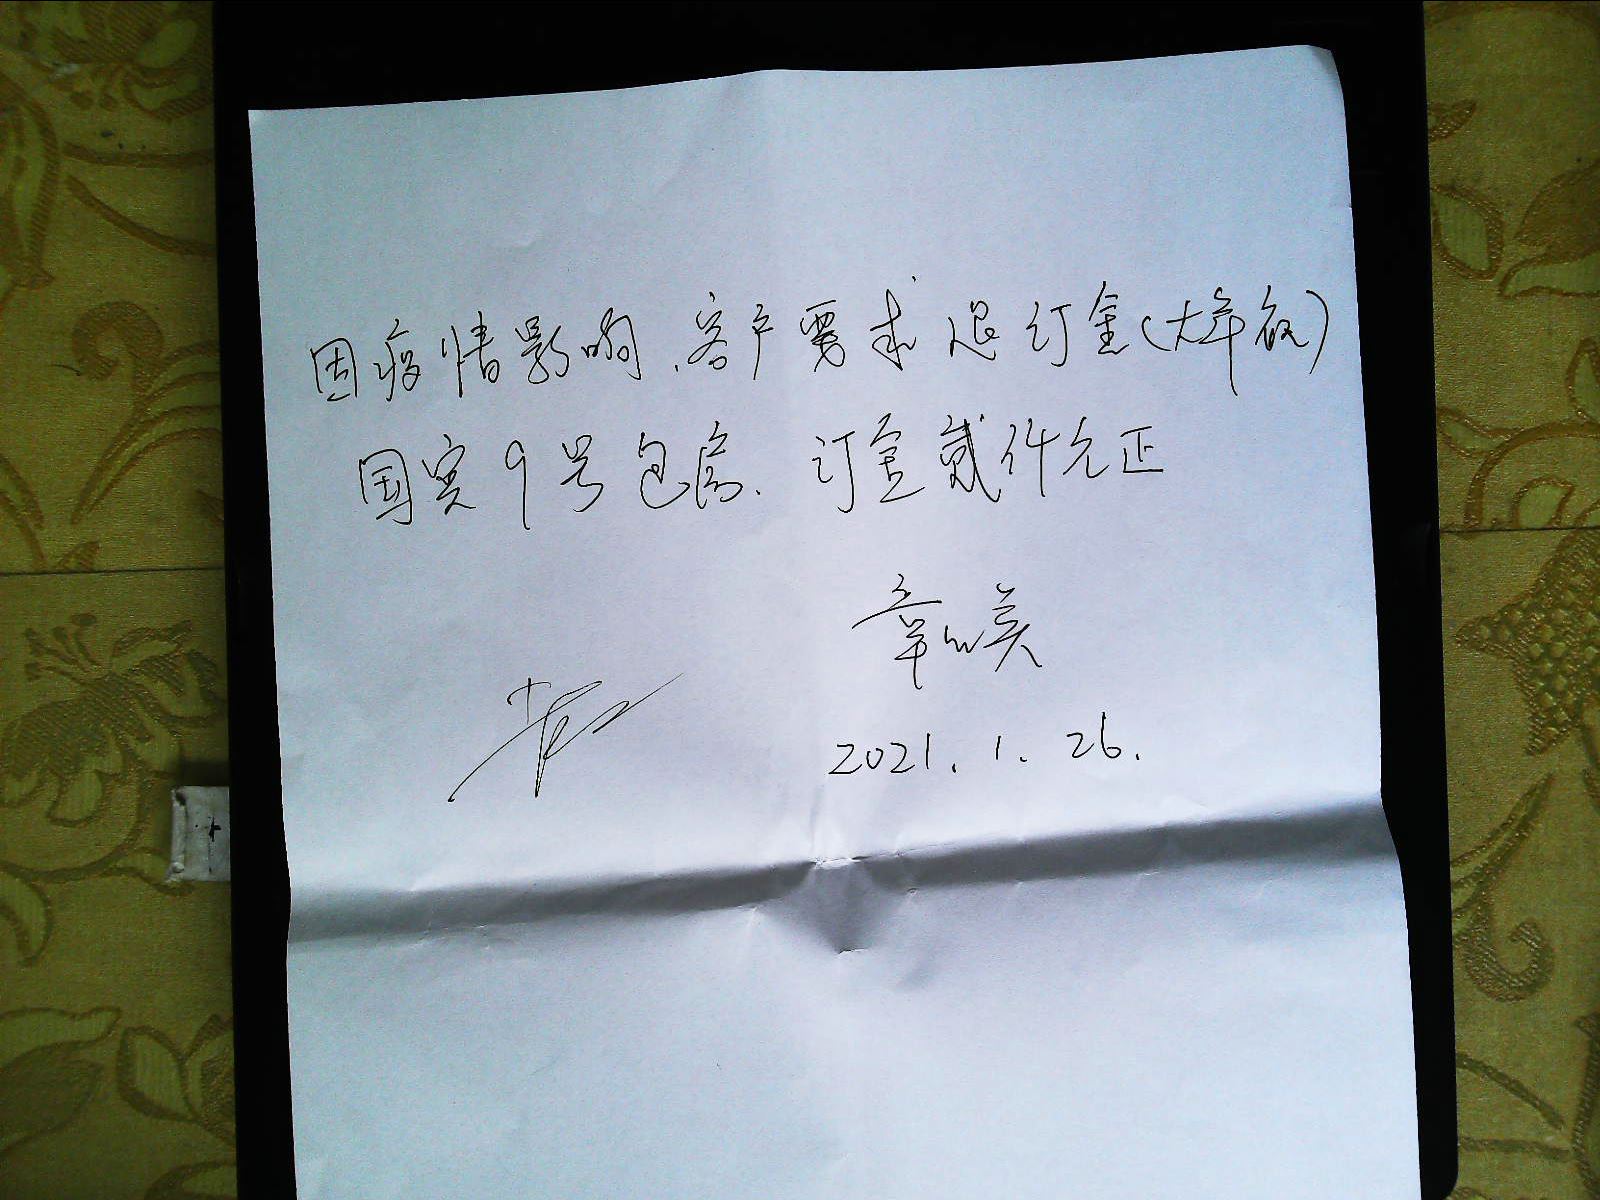 因疫情影响、客户要求退订金(大年夜)
国宾9号包房、订金贰仟元正
章以美
2021.1.26.